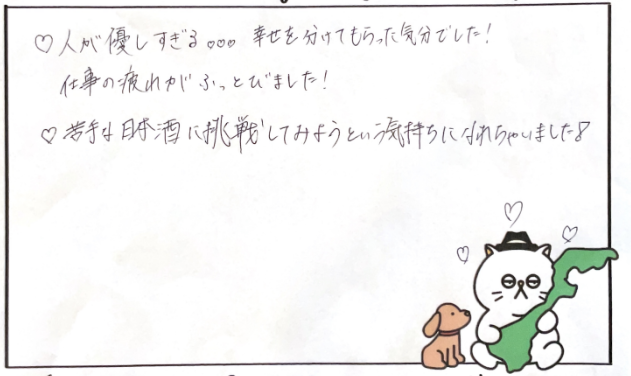 ♡人が優しすぎる。。。幸せを分けてもらった気分でした！
仕事の疲れがふっとびました！
♡苦手な日本酒に挑戦してみようという気持ちになれちゃいました